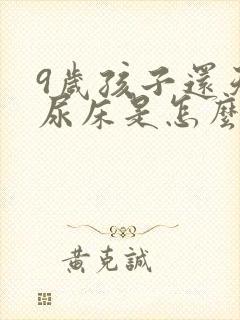 9歲孩子還天
尿床是怎麼
黃克誠